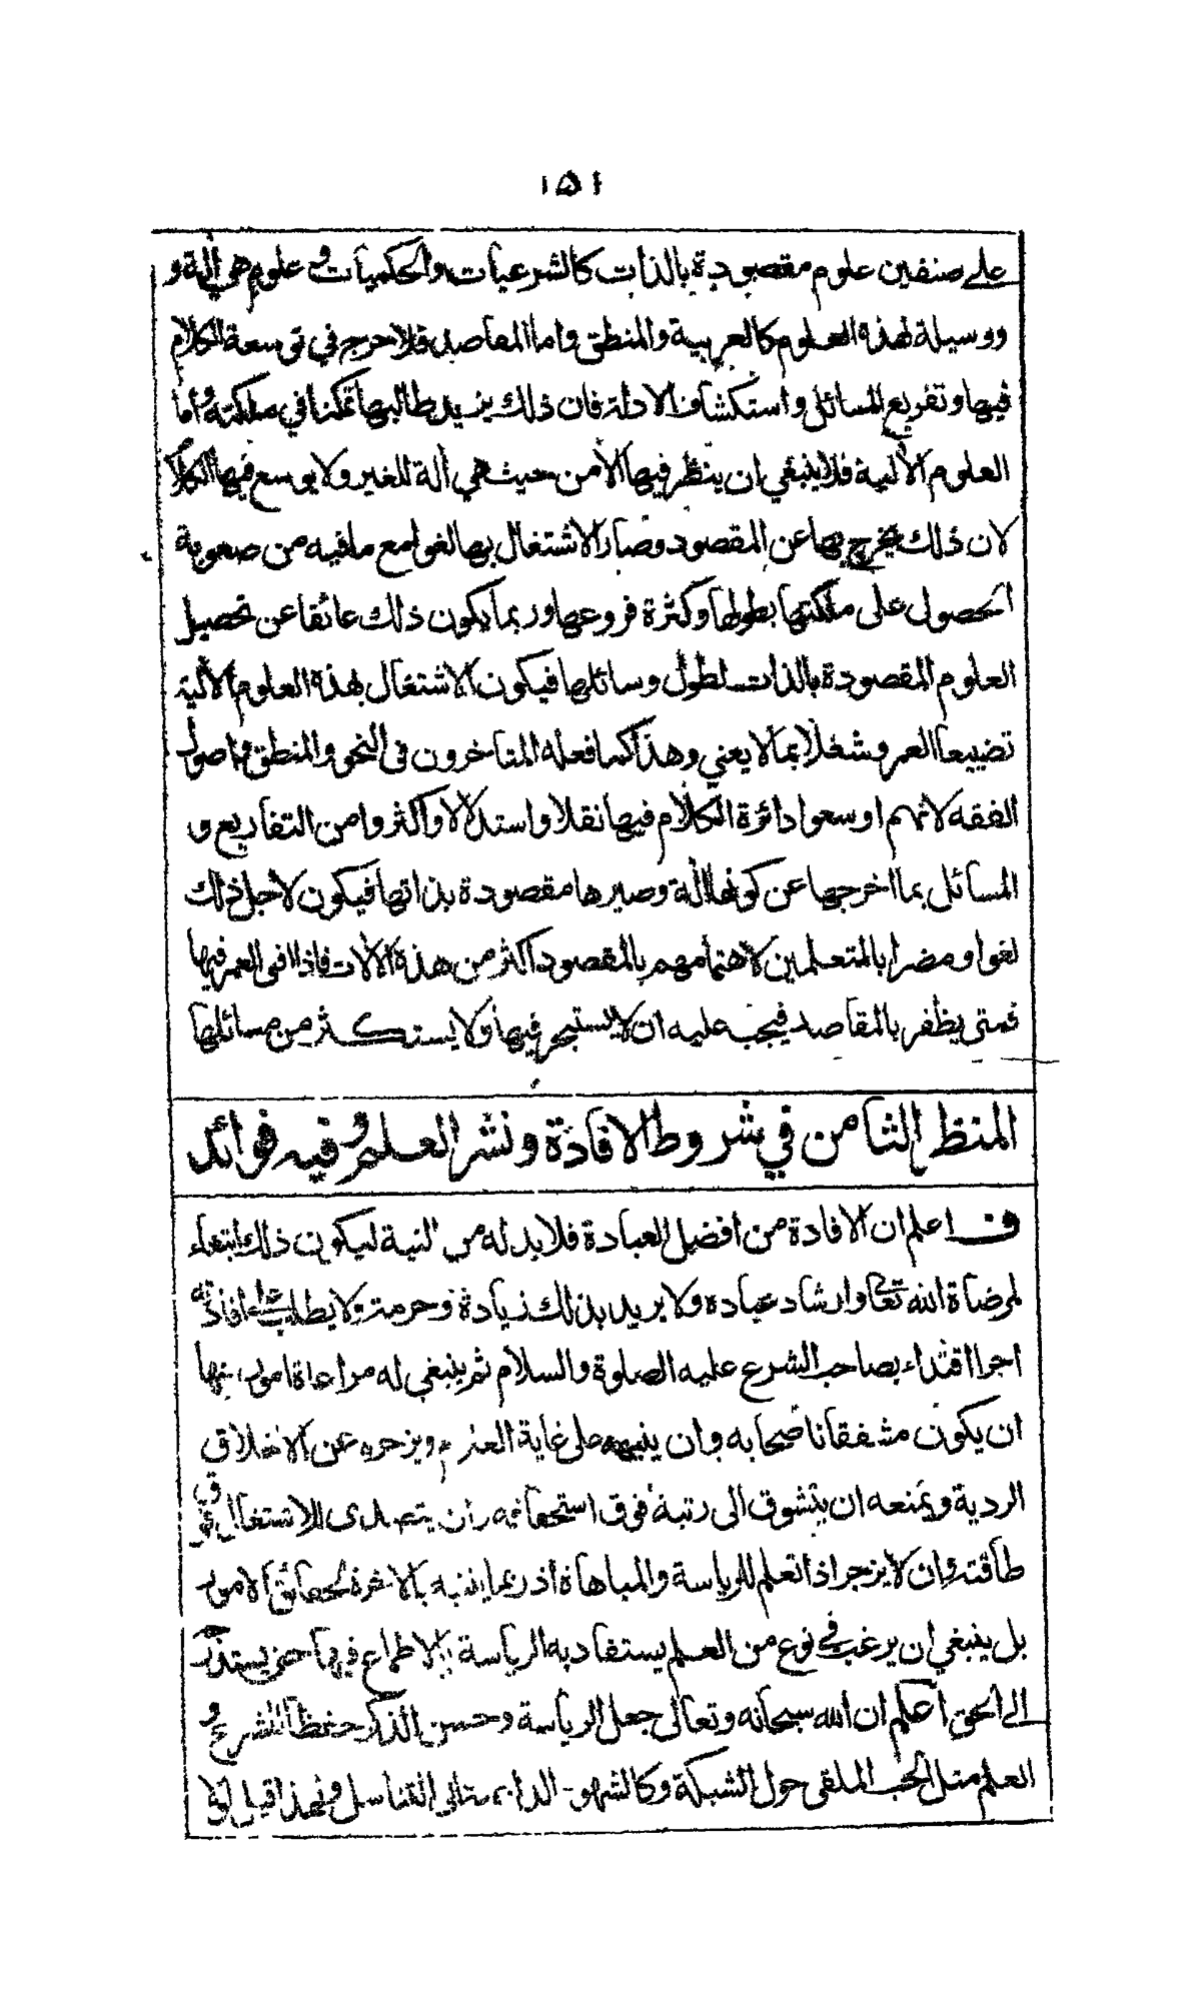 ١٥١
على صنفين علوم مقصودة بالذات كالشرعيات والحكميات و علوم هي آلة و
ووسيلة لهذه العلوم كالعربية والمنطق واما المقاصد فلا حرج في توسعة الكلام
فيها وتفريع المسائل واستكشاف الادلة فان ذلك يزيد طالبها تمكنا في ملكته واما
العلوم الآلية فلا ينبغي ان ينظر فيها الا من حيث هي آلة للغير ولا يوسع فيها الكلام
لان ذلك يخرج بها عن المقصود وصار الاشتغال بها لغوا مع ما فيه من صعوبة
الحصول على ملكتها بطولها وكثرة فروعها وربما يكون ذلك عائقا عن تحصيل
العلوم المقصودة بالذات لطول وسائلها فيكون الاشتغال بهذه العلوم الآلية
تضييعا للعمر وشغلا بما لا يعني وهذا كما فعله المتاخرون في النحو والمنطق واصول
الفقه لانهم اوسعوا دائرة الكلام فيها نقلا واستدلالا واكثروا من التفاريع و
المسائل بما اخرجها عن كونها آلة وصيرها مقصودة بذاتها فيكون لاجل ذلك
لغوا ومضرا بالمتعلمين لاهتمامهم بالمقصود اكثر من هذة الآلات فاذا افنى العمر فيها
فمتى يظفر بالمقاصد فيجب عليه ان لا يستبحر فيها ولا يستكثر من مسائلها
المنظر الثامن في شروط الافادة ونشر العلم وفيه فوائد
ف اعلم ان الافادة من افضل العبادة فلا بد له من النية ليكون ذلك ابتغاء
لمرضاة الله تعالى وارشاد عباده ولا يريد بذلك زيادة وحرمة ولا يطلب على افادته
اجرا اقتداء بصاحب الشرع عليه الصلوة والسلام ثم ينبغي له مراعاة امور منها
ان يكون مشفقا ناصحا به وان ينبهه على غاية العلوم ويزجره عن الاخلاق
الردية ويمنعه ان يتشوق الى رتبة فوق استحقاقه وان يتصدى للاشتغال فوق
طاقته وان لا يزجر اذا تعلم للرياسة والمباهاة اذ ربما يتنبه بالآخرة لحقائق الامور
بل ينبغي ان يرغب في نوع من العلم يستفاد به الرياسة بالاطماع فيها حتى يستدرجه
الى الحق اعلم ان الله سبحانه وتعالى جعل الرياسة وحسن الذكر حفظا للشرع و
العلم مثل الحب الملقى حول الشبكة وكالشهوة الداعية الى التناسل ولهذا قيل لولا